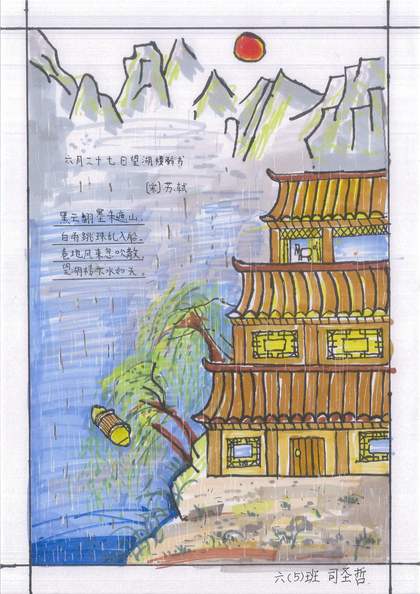 六月二十七日望湖楼醉书
[宋]苏轼
黑云翻墨未遮山,
白雨跳珠乱入船。
卷地风来忽吹散,
望湖楼下水如天。
六(5)班 司圣哲